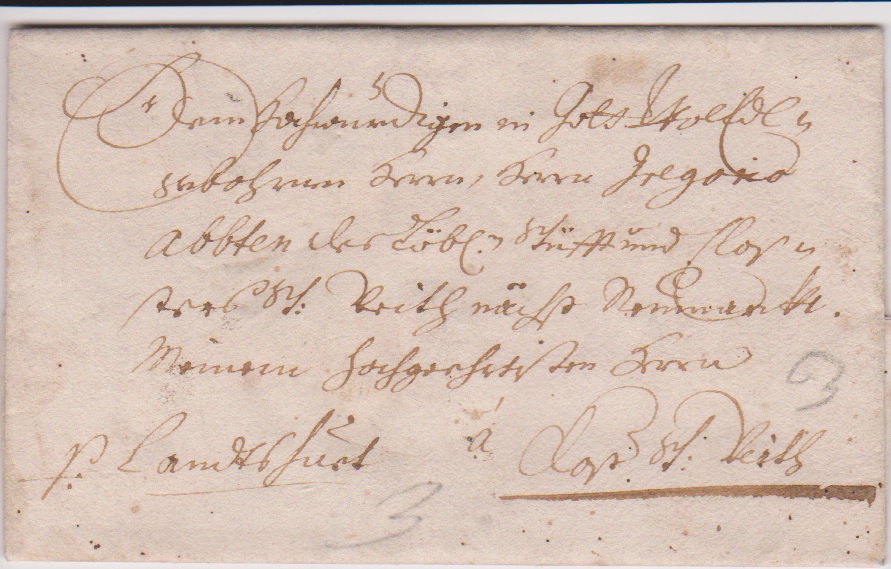 Dem Hochwürdigen in Gott Wohledl-
gebohrnen Herrn, Herrn Gregorio
Abbten des Löbl. Stüfft und Clos-
ters St: Veith nächst Neumarckt.
Meinem hochgeehrtisten Herrn
p. Landtshuet à Closter St: Veith
3
3